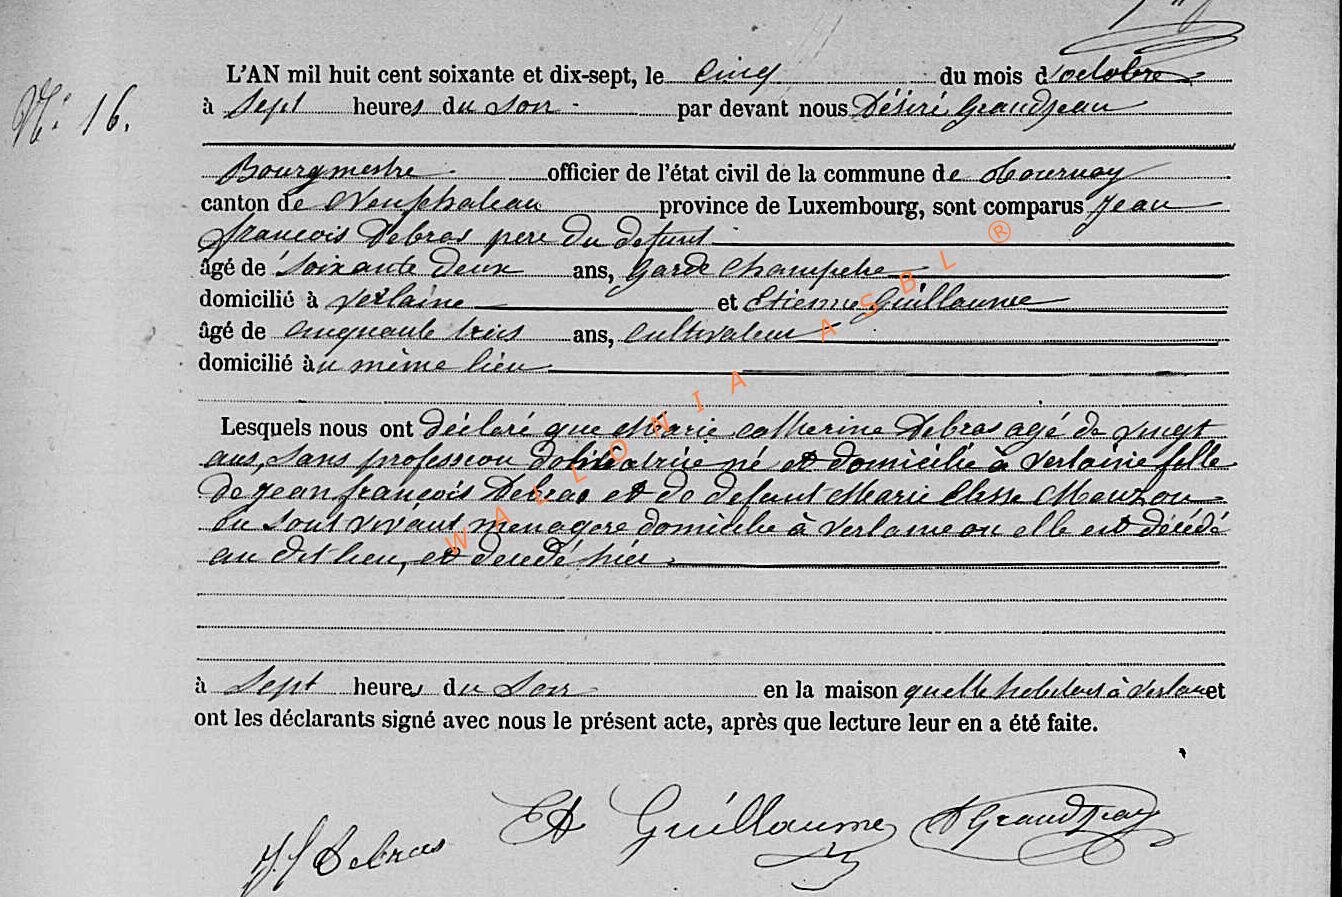 N° 16.
L'AN mil huit cent soixante et dix-sept, le cinq du mois d'octobre
à sept heures du soir par devant nous Désiré Grandjean
Bourgmestre officier de l'état civil de la commune de Tournay
canton de Neufchateau province de Luxembourg, sont comparus Jean
françois Debras pere du defunt
âgé de soixante deux ans, Garde Champetre
domicilié à Verlaine et Etienne Guillaume
âgé de cinquante trois ans, Cultivateur
domicilié au même lieu
Lesquels nous ont déclaré que Marie Catherine Debras agé de vingt
ans, sans profession né et domicilié à Verlaine fille
de Jean françois Debras et de defunt Marie Mouzon
en sont vivant menagere domicilié à Verlaine ou elle est décédé
au dit lieu, et décedé hier
à sept heures du Soir en la maison quelle habitait à Verlaine et
ont les déclarants signé avec nous le présent acte, après que lecture leur en a été faite.
J. f Debras Et Guillaume D Grandjean
WALLONIA ASBL ®